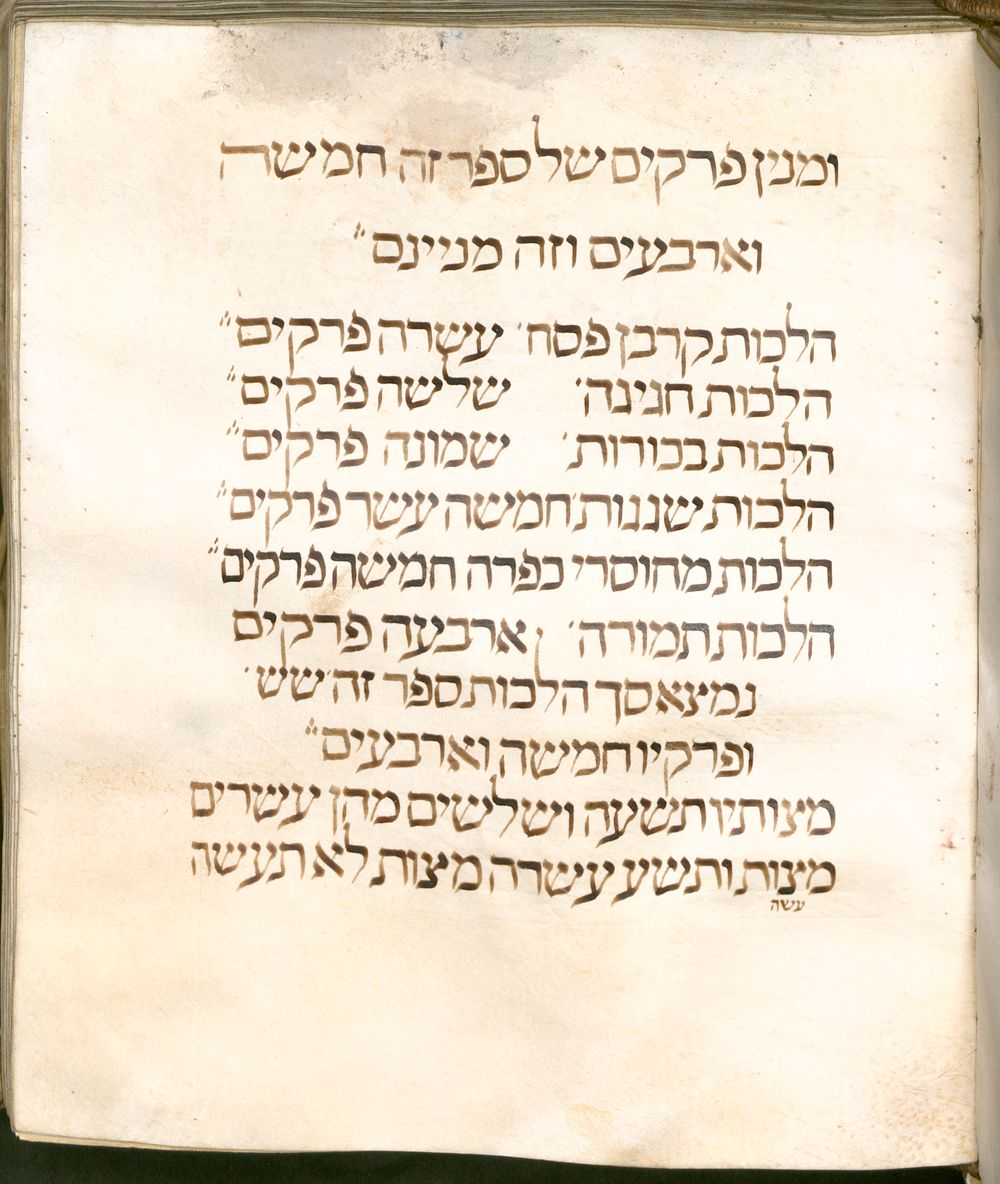 ומנין פרקים של ספר זה חמשה
וארבעים וזה מניינם״
הלכות קרבן פסח׳ עשרה פרקים״
הלכות חגיגה׳ שלשה פרקים״
הלכות בכורות׳ שמונה פרקים״
הלכות שגגות חמשה עשר פרקים״
הלכות מחוסרי כפרה חמשה פרקים״
הלכות תמורה׳ ארבעה פרקים
נמצא סך הלכות ספר זה׳ שש׳
ופרקיו חמשה וארבעים״
מצותיו תשעה ושלשים מהן עשרים
מצות ותשע עשרה מצות לא תעשה
עשה